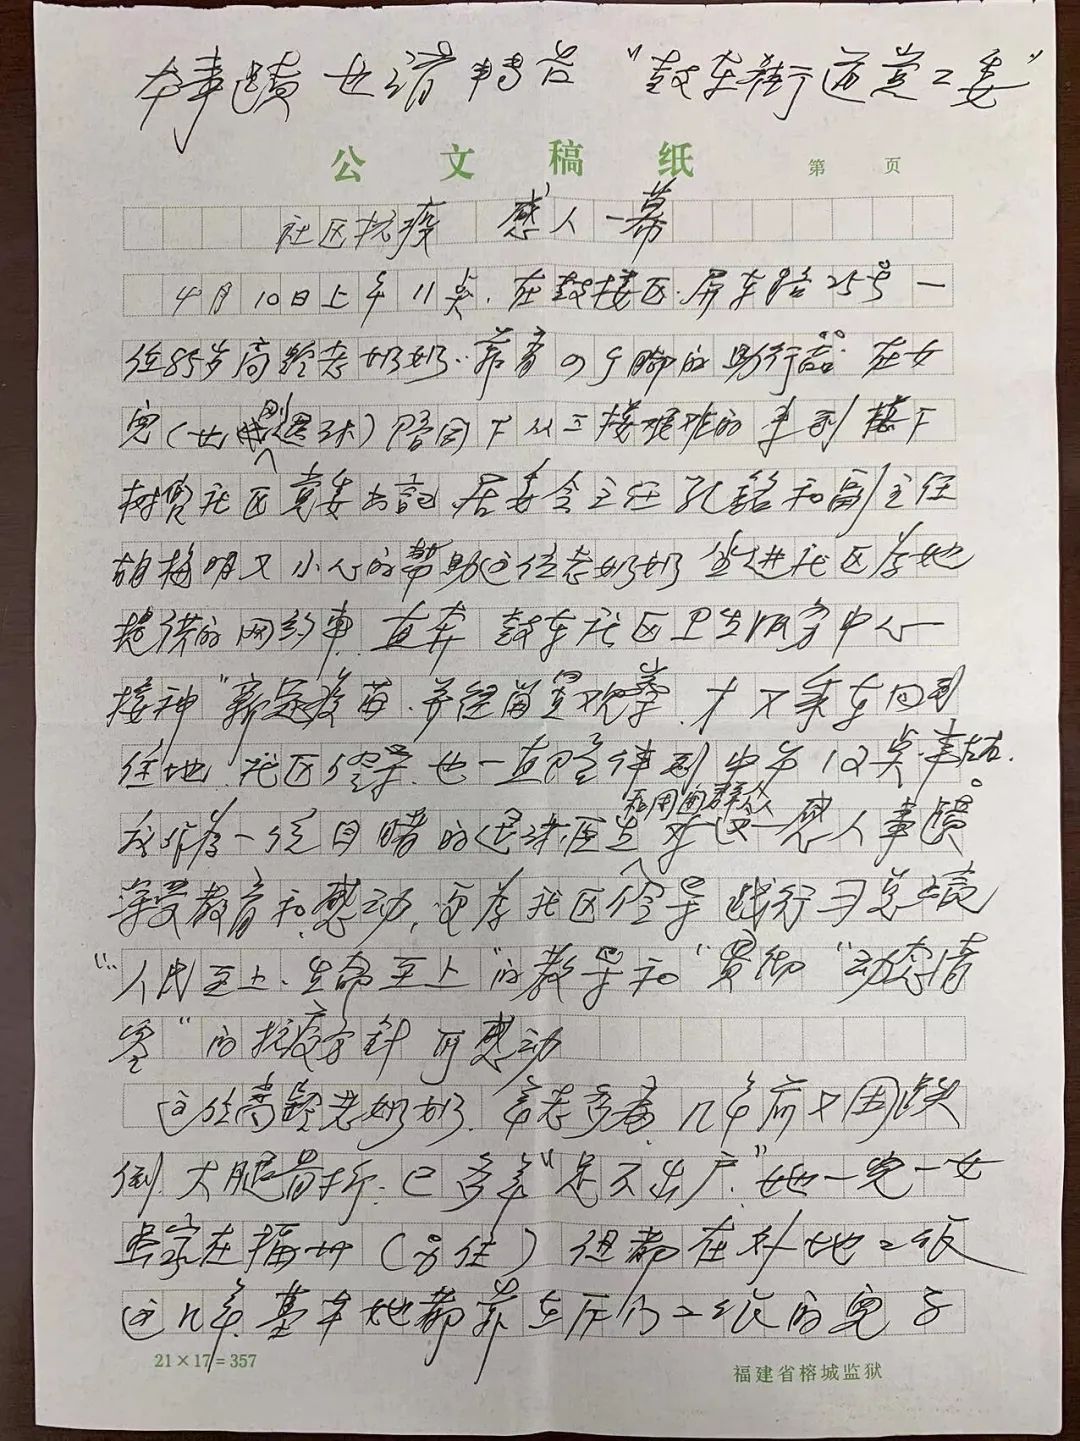 本事迹也请转告“鼓东街道党工委”
公文稿纸 第 页
社区抗疫 感人一幕
4月10日上午11点.在鼓楼区.屏东路25号一
位85岁高龄老奶奶.靠着四个脚的助行器.在女
儿(也刚退休)陪同下从三楼艰难的来到楼下
树兜社区党委书记.居委会主任孔铭和副主任
胡梅明又小心的帮助这位老奶奶坐进社区为她
提供的网约車.直奔鼓东社区卫生服务中心一
接种“新冠疫苗.并经留置观察.才又乘车回到
住地.社区领导.也一直陪伴到中午12点半左右.
我作为一位目睹的退休医生和周围群众对这一感人事蹟
深受教育和感动,更为社区领导践行习总书记
“人民至上.生命至上”的教导和“贯彻“动态清
零”的抗疫方针所感动
这位高龄老奶奶.年老多病.几年前又因跌
倒.大腿骨折.已多年“足不出户.”她一儿一女
虽家在福州(另住)但都在外地工作
这几年.基本她都靠在厦门工作的儿子
21×17=357
福建省榕城监狱